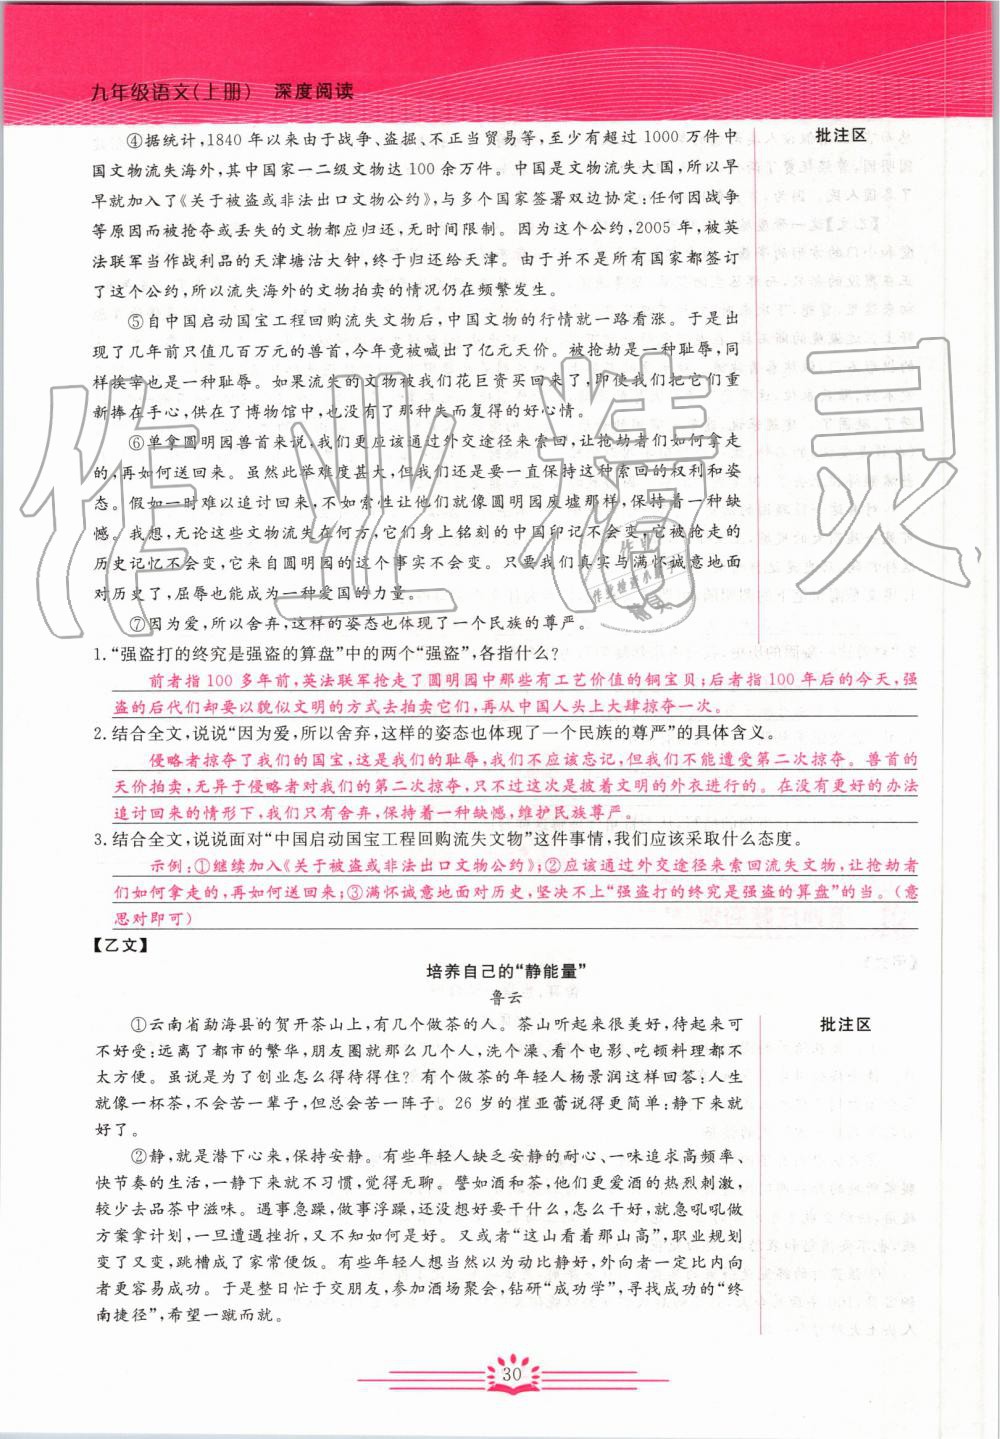 九年级语文(上册) 深度阅读
④据统计,1840 年以来由于战争、盗掘、不正当贸易等,至少有超过 1000 万件中
国文物流失海外,其中国家一二级文物达 100 余万件。中国是文物流失大国,所以早
早就加入了《关于被盗或非法出口文物公约》,与多个国家签署双边协定:任何因战争
等原因而被抢夺或丢失的文物都应归还,无时间限制。因为这个公约,2005 年,被英
法联军当作战利品的天津塘沽大钟,终于归还给天津。由于并不是所有国家都签订
了这个公约,所以流失海外的文物拍卖的情况仍在频繁发生。
⑤自中国启动国宝工程回购流失文物后,中国文物的行情就一路看涨。于是出
现了几年前只值几百万元的兽首,今年竟被喊出了亿元天价。被抢劫是一种耻辱,同
样挨宰也是一种耻辱。如果流失的文物被我们花巨资买回来了,即使我们把它们重
新捧在手心,供在了博物馆中,也没有了那种失而复得的好心情。
⑥单拿圆明园兽首来说,我们更应该通过外交途径来索回,让抢劫者们如何拿走
的,再如何送回来。虽然此举难度甚大,但我们还是要一直保持这种索回的权利和姿
态。假如一时难以追讨回来,不如索性让他们就像圆明园废墟那样,保持着一种缺
憾。我想,无论这些文物流失在何方,它们身上铭刻的中国印记不会变,它被抢走的
历史记忆不会变,它来自圆明园的这个事实不会变。只要我们真实与满怀诚意地面
对历史,屈辱也能成为一种爱国的力量。
⑦因为爱,所以舍弃,这样的姿态也体现了一个民族的尊严。
批注区
1.“强盗打的终究是强盗的算盘”中的两个“强盗”,各指什么?
前者指 100 多年前,英法联军抢走了圆明园中那些有工艺价值的铜宝贝;后者指 100 年后的今天,强
盗的后代们却要以貌似文明的方式去拍卖它们,再从中国人头上大肆掠夺一次。
2.结合全文,说说“因为爱,所以舍弃,这样的姿态也体现了一个民族的尊严”的具体含义。
侵略者掠夺了我们的国宝,这是我们的耻辱,我们不应该忘记,但我们不能遭受第二次掠夺。兽首的
天价拍卖,无异于侵略者对我们的第二次掠夺,只不过这次是披着文明的外衣进行的。在没有更好的办法
追讨回来的情形下,我们只有舍弃,保持着一种缺憾,维护民族尊严。
3.结合全文,说说面对“中国启动国宝工程回购流失文物”这件事情,我们应该采取什么态度。
示例:①继续加入《关于被盗或非法出口文物公约》;②应该通过外交途径来索回流失文物,让抢劫者
们如何拿走的,再如何送回来;③满怀诚意地面对历史,坚决不上“强盗打的终究是强盗的算盘”的当。(意
思对即可)
【乙文】
培养自己的“静能量”
鲁云
①云南省勐海县的贺开茶山上,有几个做茶的人。茶山听起来很美好,待起来可
不好受:远离了都市的繁华,朋友圈就那么几个人,洗个澡、看个电影、吃顿料理都不
太方便。虽说是为了创业怎么得待得住?有个做茶的年轻人杨景润这样回答:人生
就像一杯茶,不会苦一辈子,但总会苦一阵子。26 岁的崔亚蕾说得更简单:静下来就
好了。
②静,就是潜下心来,保持安静。有些年轻人缺乏安静的耐心、一味追求高频率、
快节奏的生活,一静下来就不习惯,觉得无聊。譬如酒和茶,他们更爱酒的热烈刺激,
较少去品茶中滋味。遇事急躁,做事浮躁,还没想好要干什么,怎么干好,就急吼吼做
方案拿计划,一旦遭遇挫折,又不知如何是好。又或者“这山看着那山高”,职业规划
变了又变,跳槽成了家常便饭。有些年轻人想当然以为动比静好,外向者一定比内向
者更容易成功。于是整日忙于交朋友,参加酒场聚会,钻研“成功学”,寻找成功的“终
南捷径”,希望一蹴而就。
批注区
30
作业精灵